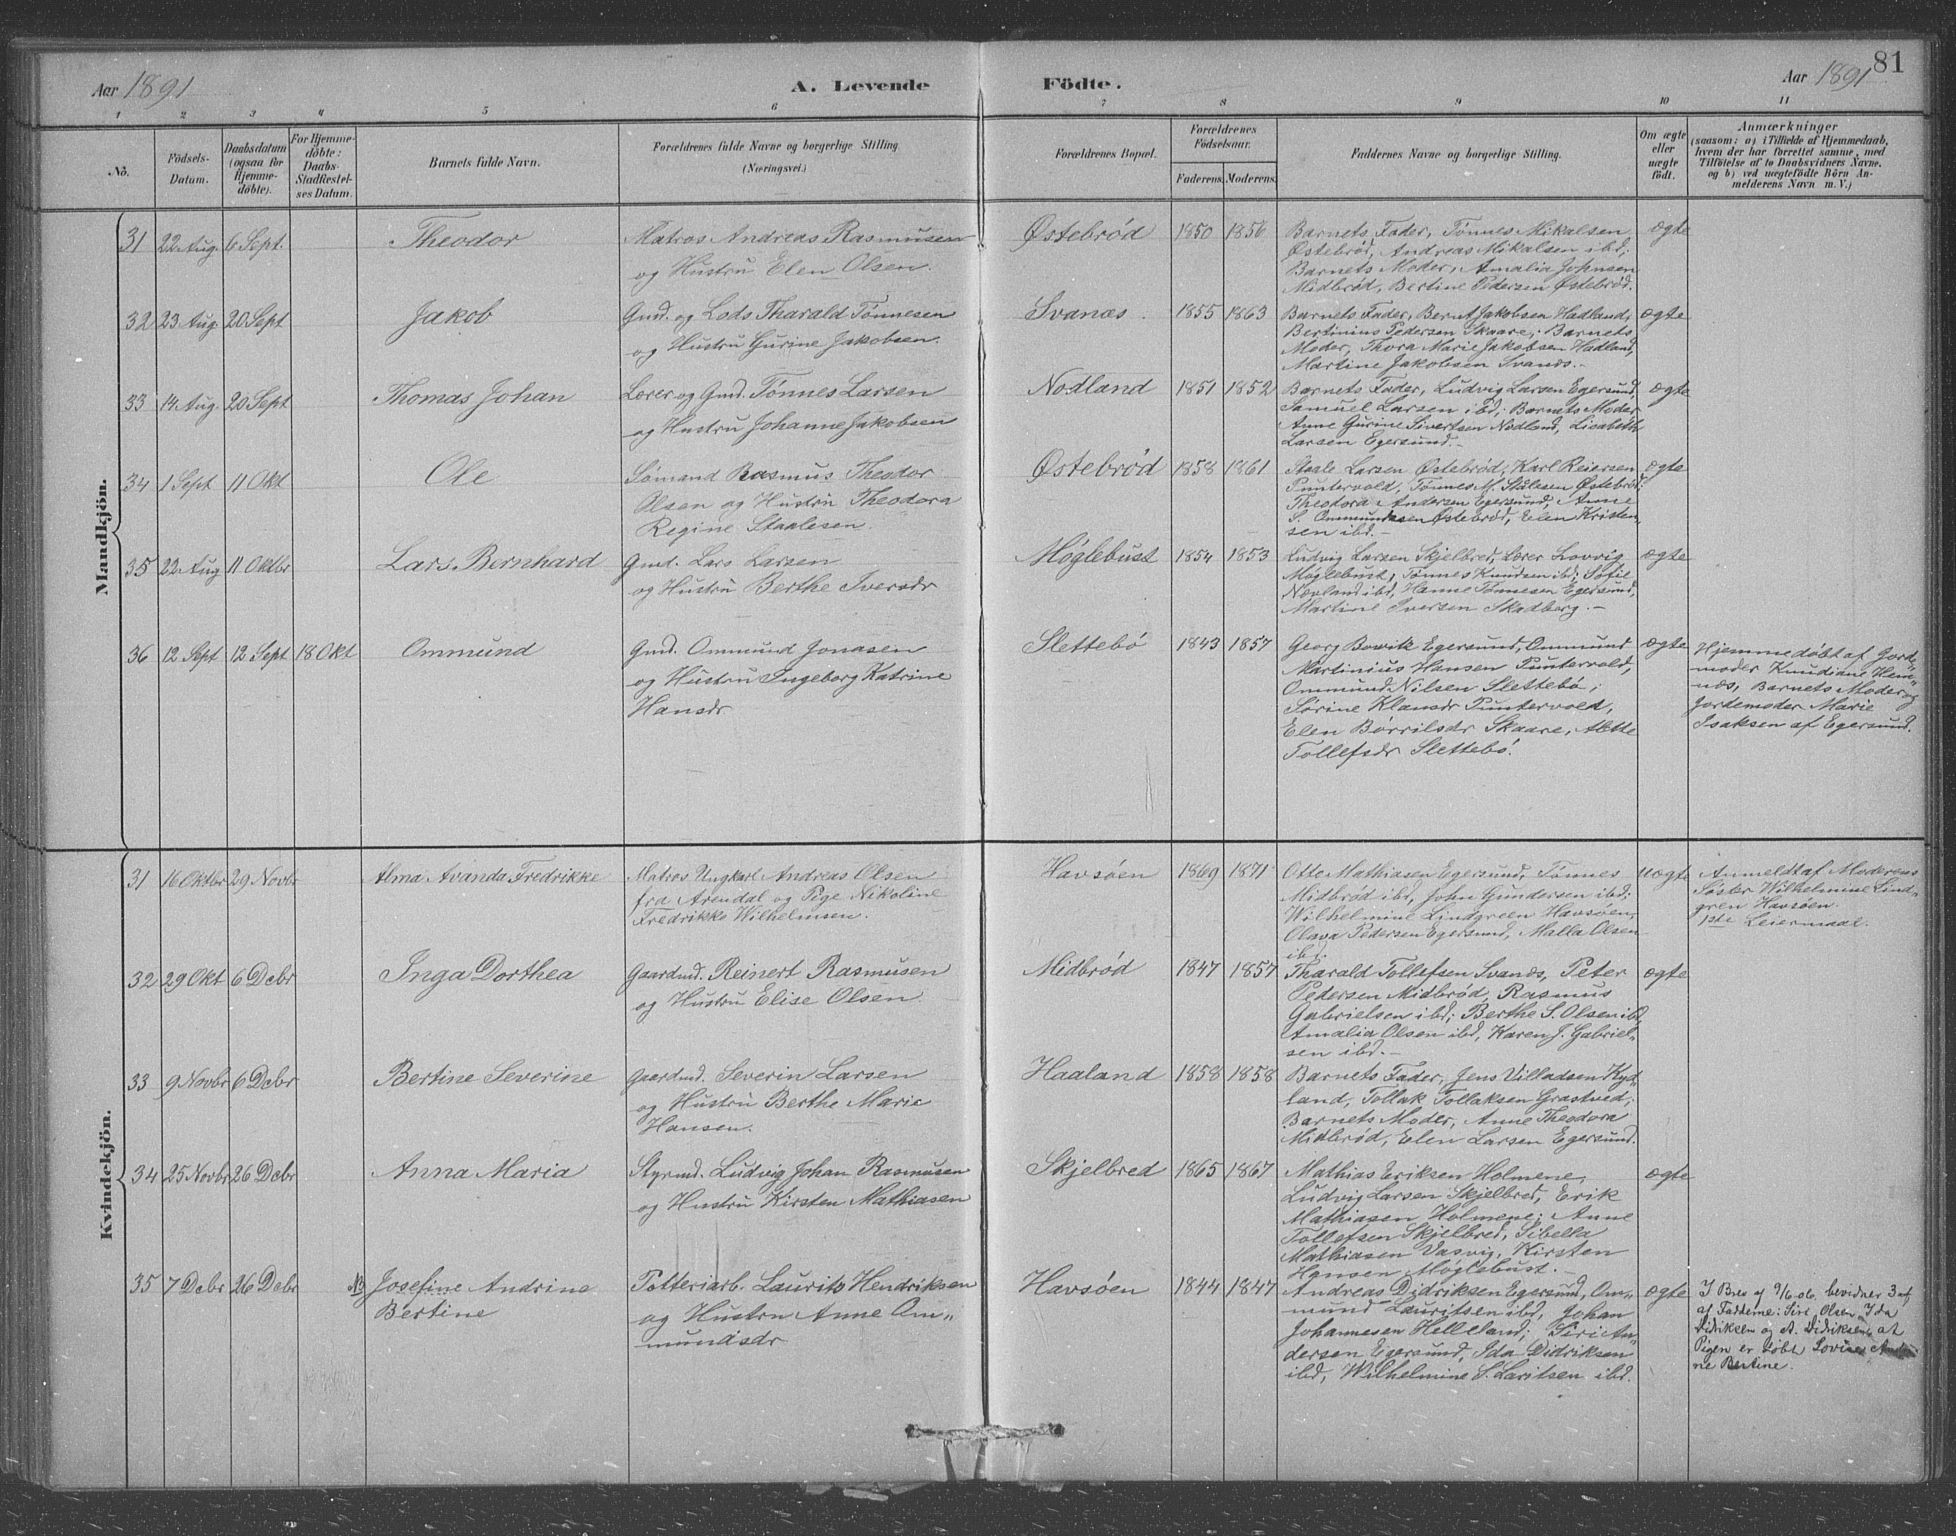 81
Aar 1891
A. Levende Födte.
Aar 1891
1 2 3 4 5 6 7 8 9 10 11
No.
Födsels-Datum.
Daabsdatum (ogsaa for Hjemmedöbte).
For Hjemmedöbte: Daabs-Stadfestelses Datum.
Barnets fulde Navn.
Forældrenes fulde Navne og borgerlige Stilling (Næringsvei.)
Forældrenes Bopæl.
Forældrenes Födselsaar.
Faderens. Moderens.
Faddernes Navne og borgerlige Stilling.
Om ægte eller uægte födt.
Anmærkninger
(saasom: a) i Tilfælde af Hjemmedaab, hvem der har forrettet samme, med Tilföielse af to Daabsvidners Navne. og b) ved uægtefödte Börn Anmelderens Navn m. V.)
Mandkjön.
31 22 Aug. 6 Sept. Theodor
Matros Andreas Rasmusen
og Hustru Elen Olsen.
Østebrød 1850 1856
Barnets Fader, Tönnes Mikalsen
Østebrød, Andreas Mikalsen ibd;
Barnets Moder, Amalia Johnsen
Midbrød, Bertine Pedersen Østebrød.
ægte
32 23 Aug 20 Sept Jakob
Gmd. og Lods Tharald Tönnesen
og Hustru Gurine Jakobsen.
Svanæs. 1855 1863
Barnets Fader, Bernt Jakobsen Hadland,
Bertinius Pedersen Skaare; Barnets
Moder, Thora Marie Jakobsen Hadland,
Martine Jakobsen Svanæs.-
ægte
33 14 Aug. 20 Sept Thomas Johan
Lærer og Gmd. Tönnes Larsen
og Hustru Johanne Jakobsen
Nodland 1851 1852
Barnets Fader, Ludvig Larsen Egersund,
Samuel Larsen ibd; Barnets Moder,
Anne Gurine Sivertsen Nodland, Lisabeth
Larsen Egersund.-
ægte
34 1 Sept 11 Okt Ole
Sömand Rasmus Theodor
Olsen og Hustru Theodora
Regine Staalesen.
Østebrød 1858 1861
Staale Larsen Østebrød, Karl Reiersen
Puntervold, Tönnes M. Stålesen Østebrød;
Theodora Andersen Egersund, Anne
S. Ommundsen Østebrød, Elen Kristen-
sen ibd.-
ægte
35 22 Aug 11 Oktbr Lars Bernhard
Gmd. Lars Larsen
og Hustru Berthe Iversdr
Møglebust 1854 1853
Ludvig Larsen Skjelbred, Lærer Lovvig
Møglebust, Tönnes Knudsen ibd; Sofie
Nevland ibd, Hanne Tönnesen Egersund,
Martine Iversen Skadberg.-
ægte
36 12 Sept 12 Sept 18 Okt Ommund
Gmd. Ommund Jonasen
og Hustru Ingeborg Katrine
Hansdr
Slettebö 1843 1857
Georg Bowik Egersund, Ommund
Martinius Hansen Puntervold,
Ommund Nilsen Slettebö;
Sörine Klausdr Puntervold,
Elen Börrilsdr Skaare, Alette
Tollefsdr Slettebö.
ægte
Hjemmedøbt af Jorde-
moder Knudiane Hem-
næs, Barnets Moder og
Jordemoder Marie
Isaksen af Egersund.
Kvindekjön.
31 16 Oktbr 29 Novbr Alma Avanda Fredrikke
Matros Ungkarl Andreas Olsen
fra Arendal og Pige Nikoline
Fredrikke Wilhelmsen.
Havsöen 1869 1871
Otto Mathiasen Egersund, Tönnes
Midbrød ibd, John Gundersen ibd;
Wilhelmine Lindgreen Havsöen,
Olava Pedersen Egersund, Malla Olsen
ibd.
uægte
Anmeldt af Moderens
Søster Wilhelmine Lind-
gren Havsöen.
1ste Leiermaal.
32 29 Okt 6 Debr Inga Dorthea
Gaardmd. Reinert Rasmusen
og Hustru Elise Olsen.
Midbrød 1847 1857
Tharald Tollefsen Svanæs, Peter
Pedersen Midbrød, Rasmus
Gabrielsen ibd; Berthe S. Olsen ibd,
Amalia Olsen ibd, Karen J. Gabriel-
sen ibd.-
ægte
33 9 Novbr 6 Debr Bertine Severine
Gaardmd. Severin Larsen
og Hustru Berthe Marie
Hansen.
Haaland 1858 1858
Barnets Fader, Jens Villadsen Kyd-
land, Tollak Tollaksen Grastved;
Barnets Moder, Anne Theodora
Midbrød, Elen Larsen Egersund.
34 25 Novbr 26 Debr Anna Maria
Styrmd. Ludvig Johan Rasmusen
og Hustru Kirsten Mathiasen
Skjelbred 1865 1867
Mathias Eriksen Holmene,
Ludvig Larsen Skjelbred, Erik
Mathiasen Holmene; Anne
Tollefsen Skjelbred, Sibella
Mathiasen Vasvig, Kirsten
Hansen Møglebust.-
ægte
35 7 Debr 26 Debr NB Josefine Andrine
Bertine
Potteriarb. Laurits Hendriksen
og Hustru Anne Om-
mundsdr
Havsöen 1844 1847
Andreas Didriksen Egersund, Om-
mund Lauritsen ibd, Johan
Johannesen Helleland; Siri An-
dersen Egersund, Ida Didriksen
ibd, Wilhelmine S. Laritsen ibd.
ægte
I Brev af 9/6 06. bevidner 3 af
af Fadderne: Siri Olsen, Ida
Didriksen og A. Didriksen at
Pigen er döbt Lovise Andri-
ne Bertine.